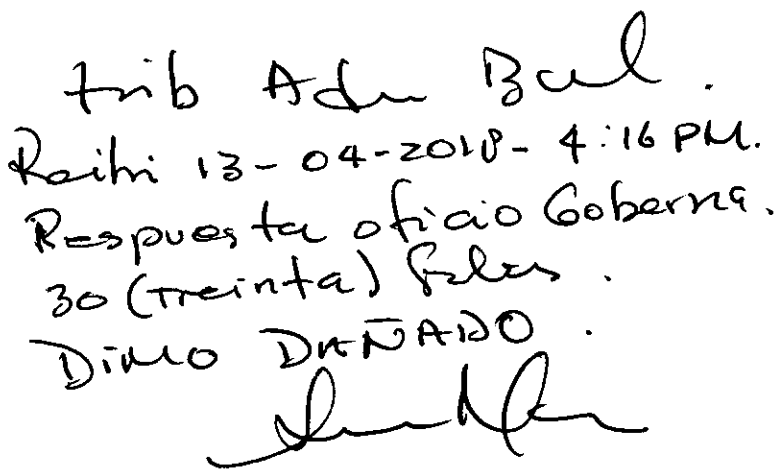 trib Adm Bol.
Recibi 13-04-2018- 4:16 PM.
Respuesta oficio Goberna.
30 (treinta) folios.
DAÑADO.